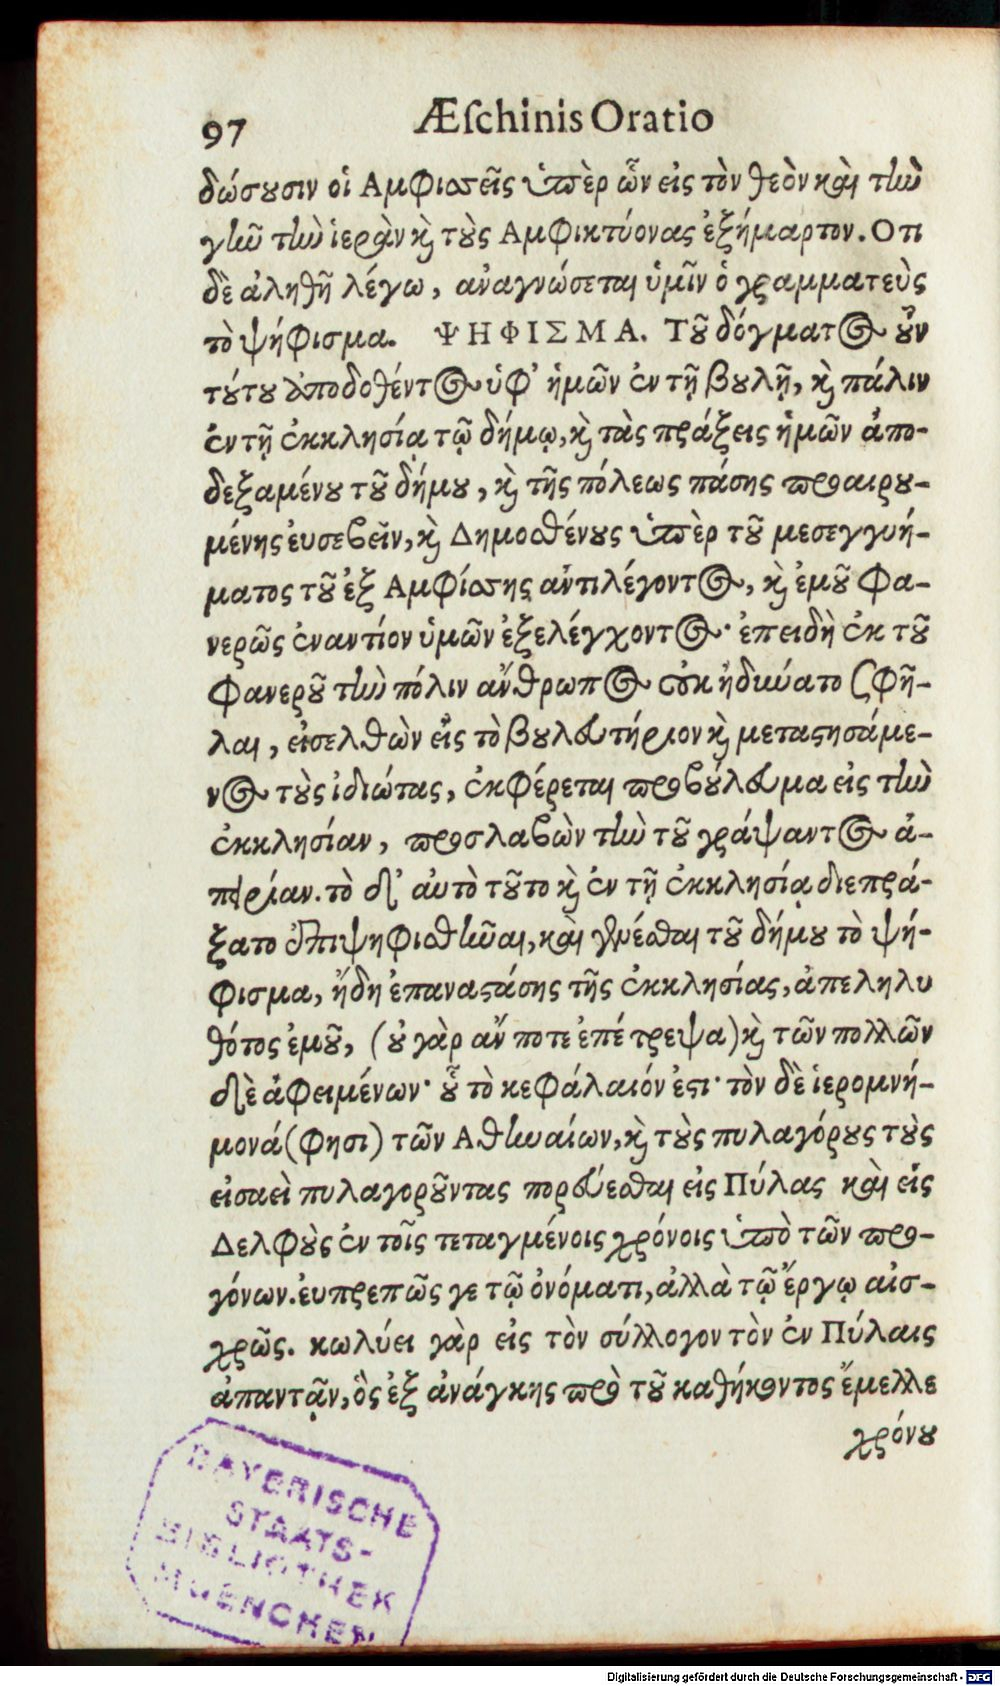 97 Æſchinis Oratio
δώσουσιν οἱ Αμφισσεῖς ὑπὲρ ὧν εἰς τὸν θεὸν καὶ τὴν
γῆν τὴν ἱερὰν κỳ τοὺς Αμφικτύονας ἐξήμαρτον. Οτι
δὲ ἀληθῆ λέγω, ἀναγνώσεται ὑμῖν ὁ γραμματεὺς
τὸ ψήφισμα. ΨΗΦΙΣΜΑ. Τοῦ δόγματος οὖν
τούτου ἀποδοθέντος ὑφ' ἡμῶν ἐν τῇ βουλῇ, κỳ πάλιν
ἐν τῇ ἐκκλησίᾳ τῷ δήμῳ, κỳ τὰς πράξεις ἡμῶν ἀπο-
δεξαμένου τοῦ δήμου, κỳ τῆς πόλεως πάσης προαιρου-
μένης ἐυσεβεῖν, κỳ Δημοσθένους ὑπὲρ τοῦ μεσεγγυή-
ματος τοῦ ἐξ Αμφίσσης ἀντιλέγοντος, κỳ ἐμοῦ φα-
νερῶς ἐναντίον ὑμῶν ἐξελέγχοντος· ἐπειδὴ ἐκ τοῦ
φανεροῦ τὴν πόλιν ἄνθρωπος οὐκ ἠδύνατο σφῆ-
λαι, εἰσελθὼν εἰς τὸ βουλευτήριον κỳ μεταστησάμε-
νος τοὺς ἰδιώτας, ἐκφέρεται προβούλευμα εἰς τὴν
ἐκκλησίαν, προσλαβὼν τὴν τοῦ γράψαντος ἀ-
πειρίαν. τὸ δ' ἀυτὸ τοῦτο κỳ ἐν τῇ ἐκκλησίᾳ διεπρά-
ξατο ἐπιψηφισθῆναι, καὶ γενέσθαι τοῦ δήμου τὸ ψή-
φισμα, ἤδη ἐπαναστάσης τῆς ἐκκλησίας, ἀπεληλυ
θότος ἐμοῦ, (οὐ γὰρ ἄν ποτε ἐπέτρεψα) κỳ τῶν πολλῶν
δὲ ἀφειμένων· οὗ τὸ κεφάλαιόν ἐστι· τὸν δὲ ἱερομνή-
μονά (φησι) τῶν Αθηναίων, κỳ τοὺς πυλαγόρους τοὺς
εἰσαεὶ πυλαγοροῦντας πορεύεσθαι εἰς Πύλας καὶ εἰς
Δελφοὺς ἐν τοῖς τεταγμένοις χρόνοις ὑπὸ τῶν προ-
γόνων. ἐυπρεπῶς γε τῷ ὀνόματι, ἀλλὰ τῷ ἔργῳ αἰσ-
χρῶς. κωλύει γὰρ εἰς τὸν σύλλογον τὸν ἐν Πύλαις
ἀπαντᾷν, ὃς ἐξ ἀνάγκης πρὸ τοῦ καθήκοντος ἔμελλε
χρόνου
BAYERISCHE
STAATS-
BIBLIOTHEK
MUENCHEN
Digitalisierung gefördert durch die Deutsche Forschungsgemeinschaft - DFG